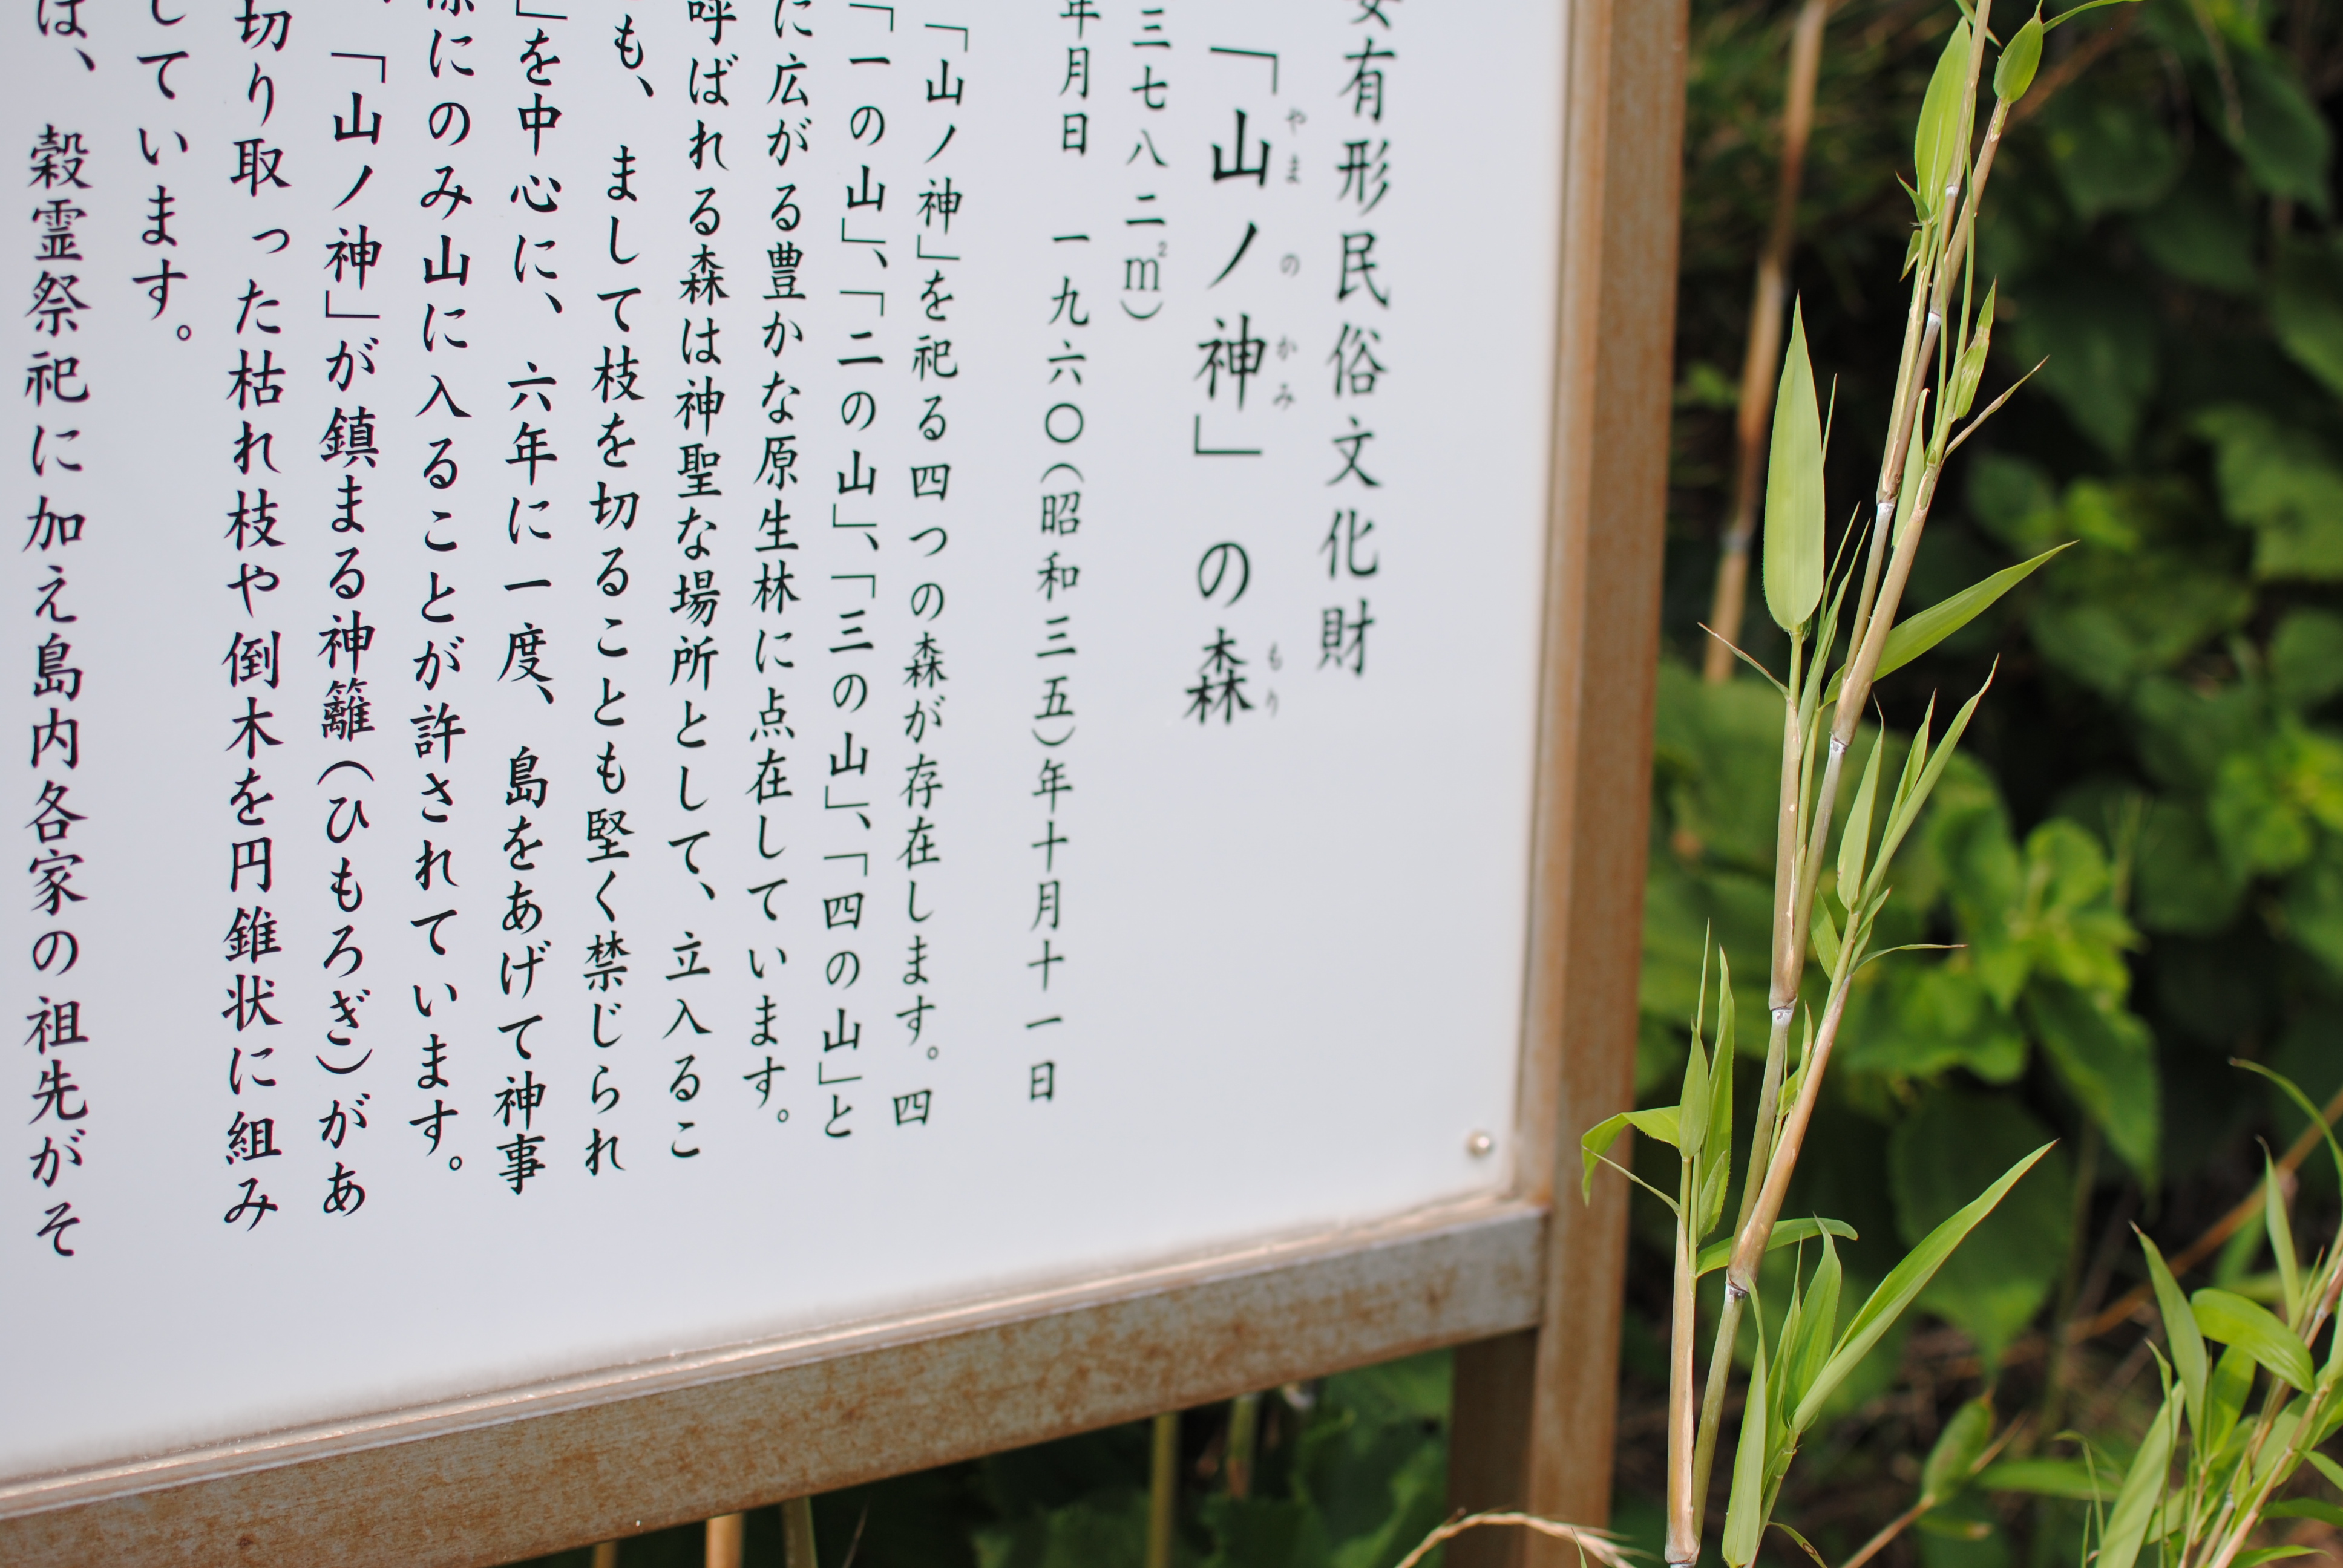 有形民俗文化財
「山ノ神」の森
やまのかみ もり
三七八二㎡)
年月日 一九六〇(昭和三五)年十月十一日
「山ノ神」を祀る四つの森が存在します。四
「一の山」、「二の山」、「三の山」、「四の山」と
に広がる豊かな原生林に点在しています。
呼ばれる森は神聖な場所として、立入るこ
も、ましてて枝を切ることも堅く禁じられ
」を中心に、六年に一度、島をあげて神事
際にのみ山に入ることが許されています。
「山ノ神」が鎮まる神籬(ひもろぎ)があ
切り取った枯れ枝や倒木を円錐状に組み
しています。
は、穀霊祭祀に加え島内各家の祖先がそ